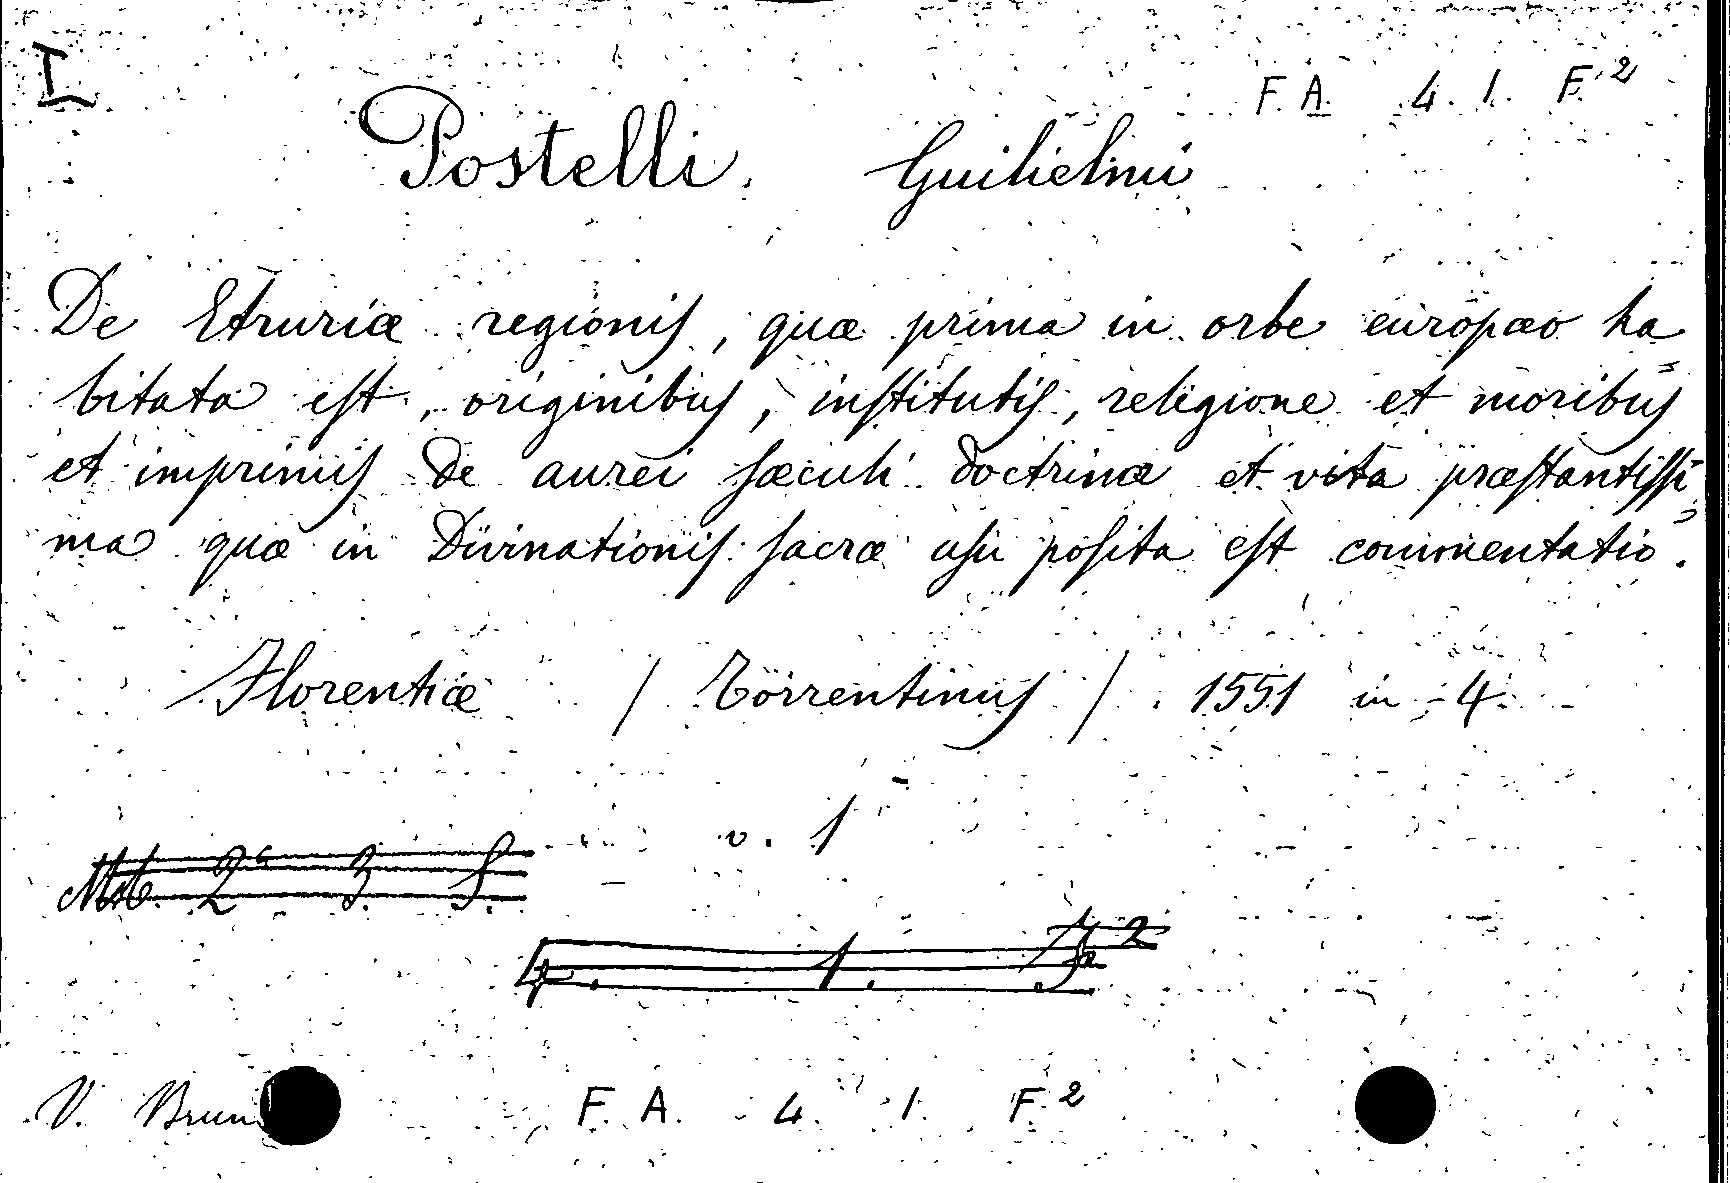 I
F. A. 4. 1. F.²
Postelli, Guilielmi
De Etruriæ regionis, quæ prima in orbe europæo ha=
bitata est, originibus, institutis, religione et moribus
et imprimis de aurei sæculi doctrina et vita præstantissi=
ma quæ in Divinationis sacræ usu posita est commentatio.
Florentiæ / Torrentinus / 1551 in-4
v. 1
4. 1. F²
V. Brun
F. A. 4. 1. F.²